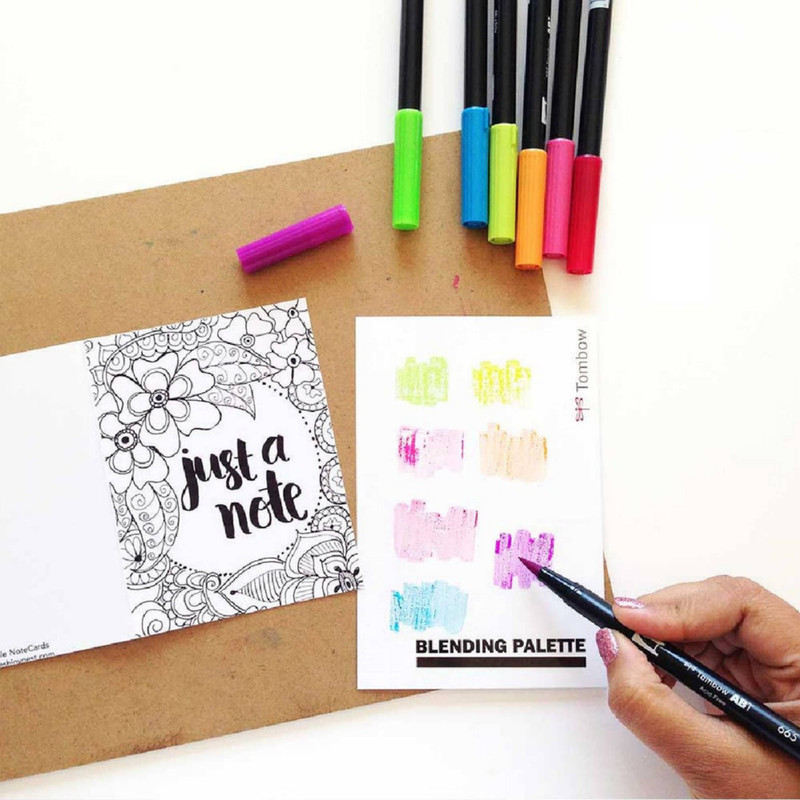 just a
note
le NoteCards
Tombow
BLENDING PALETTE
Tombow ABT
665